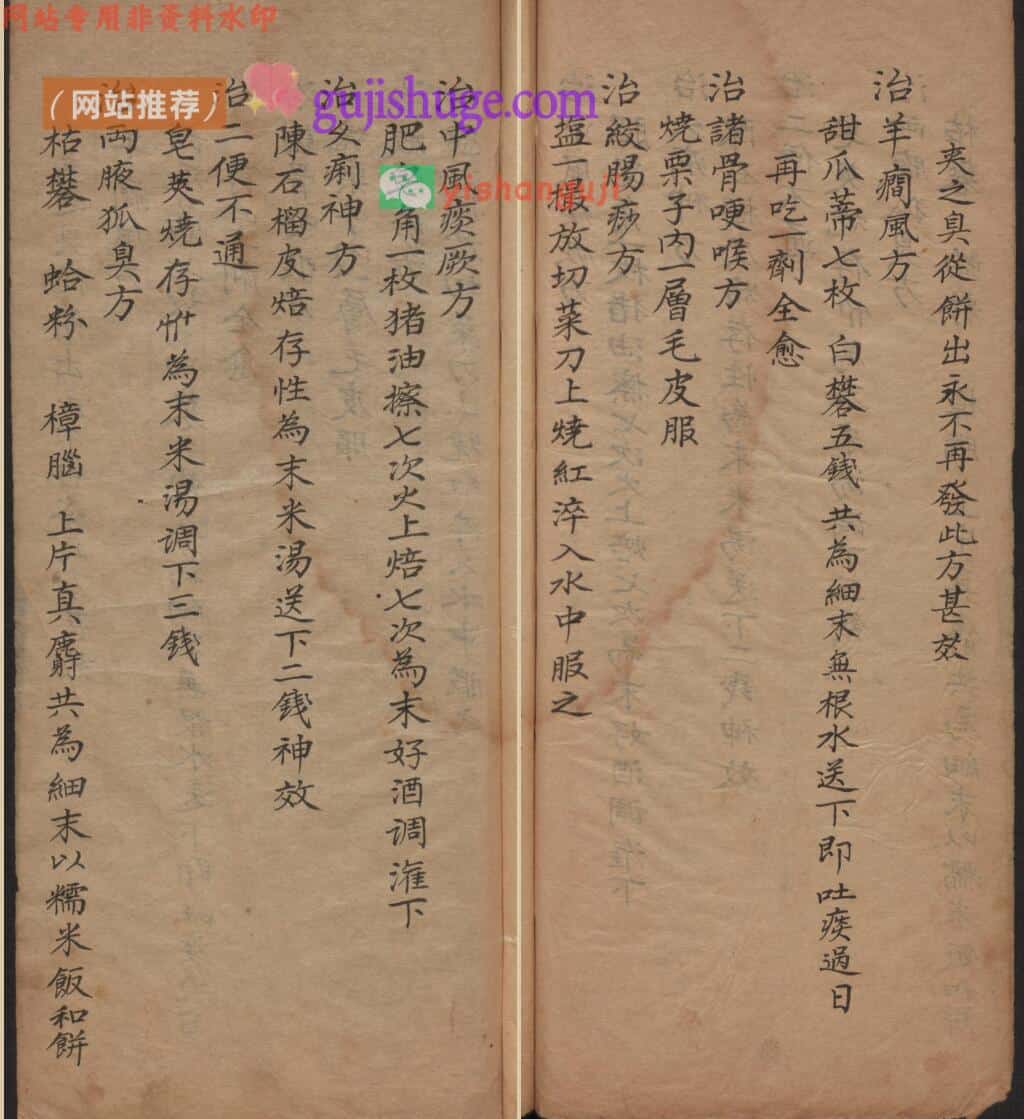 网站专用非资料水印
（网站推荐）
gujishuge.com
yishanguji
夾之臭從餅出永不再發此方甚效
治羊癇風方
甜瓜蒂七枚 白礬五錢 共為細末無根水送下即吐痰過日
再吃一劑全愈
治諸骨哽喉方
燒栗子內一層毛皮服
治絞腸痧方
塩一撮放切菜刀上燒紅淬入水中服之
治中風痰厥方
肥皂角一枚猪油擦七次火上焙七次為末好酒调潅下
治久痢神方
陳石榴皮焙存性為末米湯送下二錢神效
治二便不通
皂莢燒存性為末米湯调下三錢
治両腋狐臭方
枯礬 蛤粉 樟腦 上片真麝共為細末以糯米飯和餅